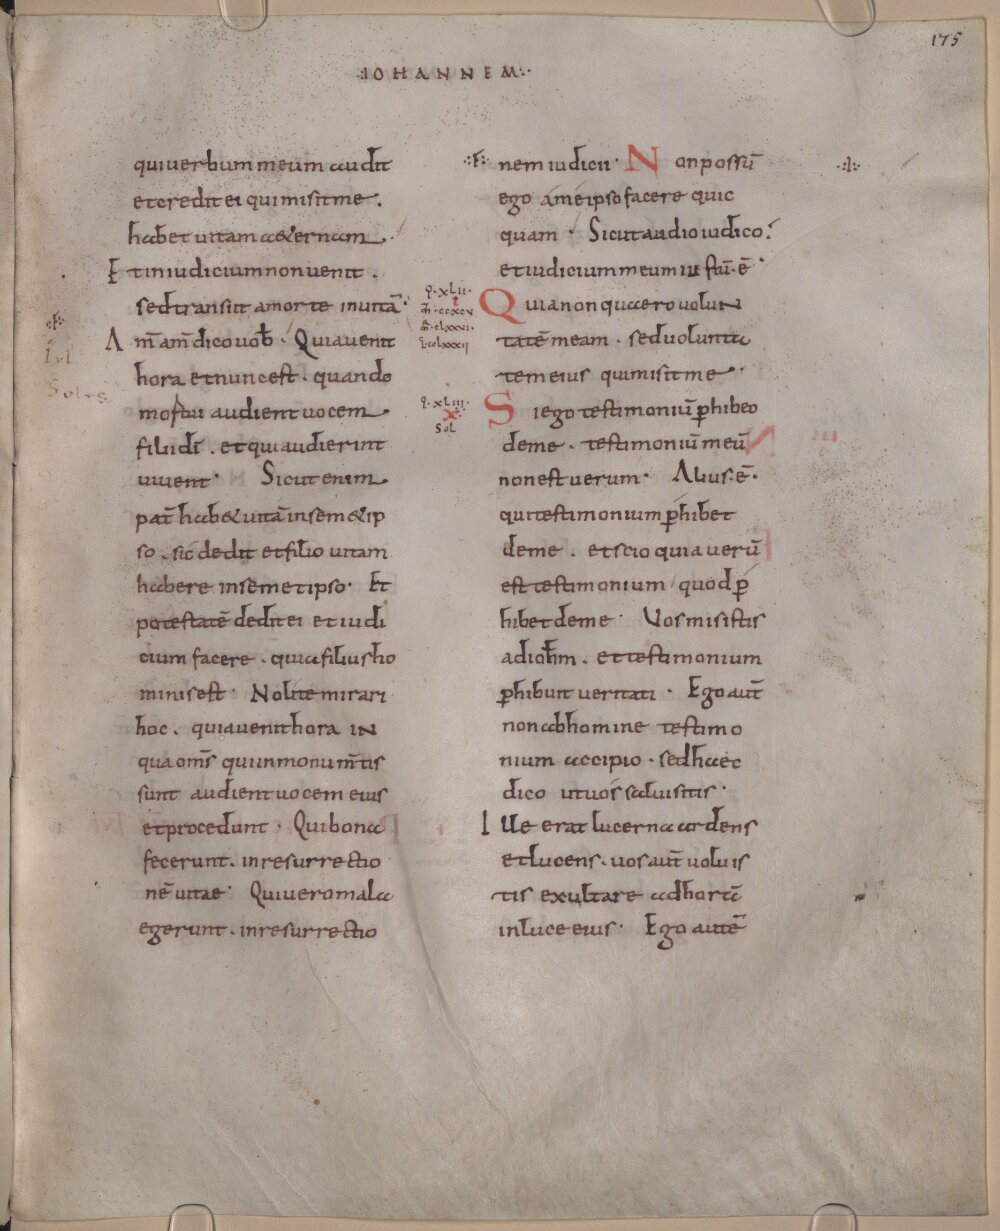 175
:IOHANNEM:
qui uerbum meum audit
et credit ei qui misit me.
habet uitam aeternam.
Et in iudicium non uenit.
sed transiit a morte in uitā.
Am̄ am̄ dico uob. Quia uenit
hora et nunc est. quando
mortui audient uocem
filii dī. et qui audierint
uiuent. Sicut enim
pat̄ habet uitā in semetip
so. sic dedit et filio uitam
habere in semetipso. Et
potestatē dedit ei et iudi
cium facere. quia filius ho
minis est. Nolite mirari
hoc. quia uenit hora in
qua om̄s qui in monum̄tis
sunt audient uocem eius
et procedunt. Qui bona
fecerunt. in resurrectio
nē uitae. Qui uero mala
egerunt. in resurrectio
nem iudicii. Non possū
ego a me ipso facere quic
quam. Sicut audio iudico.
et iudicium meum iustū. ē.
Quia non quaero volun
tatē meam. sed volunta
tem eius qui misit me.
Si ego testimoniū phibeo
de me. testimoniū meū
non est uerum. Alius. ē.
qui testimonium phibet
de me. et scio quia uerū
est testimonium quod p
hibet de me. Vos misistis
ad ioh̄m. et testimonium
phibuit ueritati. Ego aut̄
non ab homine testimo
nium accipio. sed haec
dico ut uos salui sitis.
Ille erat lucerna ardens
et lucens. uos aut̄ uoluis
tis exultare ad horā
in luce eius. Ego autē